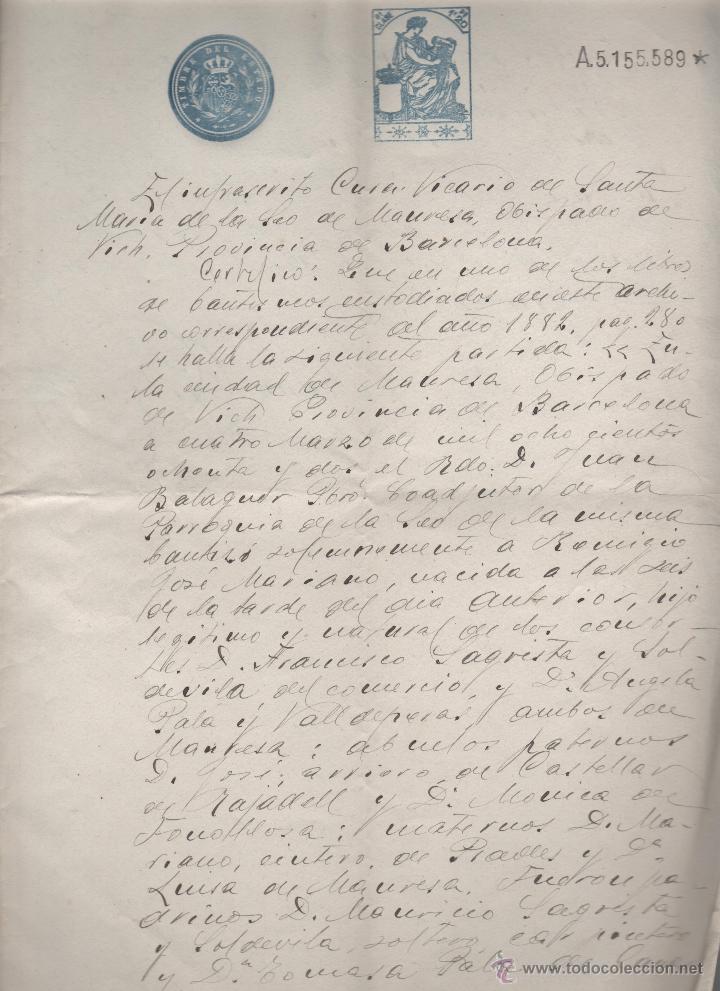 TIMBRE DEL ESTADO
1'20
A.5.155.589*
El infrascrito Cura-Vicario de Santa
Maria de la Seo de Manresa, Obispado de
Vich, Provincia de Barcelona.
Certifico: Que en uno de los libros
de bautismos custodiados en este archi-
vo correspondiente del año 1882, pag. 280
se halla la siguiente partida: En
la ciudad de Manresa, Obispado
de Vich Provincia de Barcelona
a cuatro Marzo de mil ochocientos
ochenta y dos el Rdo. D. Juan
Balaguer Pbro. Coadjutor de la
Parroquia de la Seo de la misma
bautizó solemnemente a Remigio
José Mariano, nacido a las seis
de la tarde del dia anterior, hijo
legitimo y natural de los consor-
tes D. Francisco Sagrista y Sol-
devila del comercio, y Dª Angela
Palá y Valldeperas ambos de
Manresa; abuelos paternos
D. José, arriero, de Castellar
de Rajadell y Dª Monica de
Fonollosa; maternos D. Ma-
riano, cintero, de Prades y Dª
Luisa de Manresa. Fueron pa-
drinos D. Mauricio Sagrista
y Soldevila, soltero, carpintero
y Dª Tomasa Palá de
todocoleccion
www.todocoleccion.net